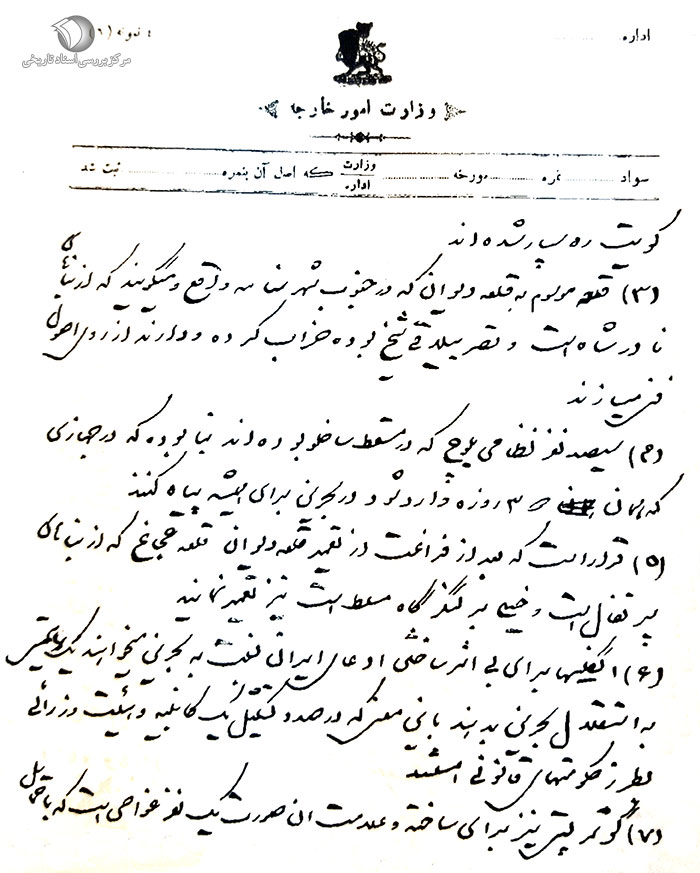 نمونه (۶)
مرکز بررسی اسناد تاریخی
اداره
وزارت امور خارجه
سواد نمره مورخه وزارت اداره که اصل آن بنمره ثبت شد
کویت ره سپار شده اند
(۳) قلعه موسوم به قلعه دیوان که در جنوب شهر منامه واقع و میگویند که از بناهای
نادرشاه است و تصرفی شیخ بوده خراب کرده و دارند از روی اصول
فنی میسازند
(۴) سیصد نفر نظامی بلوچ که در مسقط ساخلو بوده اند بنا بوده که در جهازی
که همان ۳۰ روزه وارد شود در بحرین برای همیشه پیاده کنند
(۵) قرار است که بعد از فراغت از تعمیر قلعه دیوان قلعه که از بناهای
پرتقال است و خیلی بر لنگرگاه مسلط است نیز تعمیر نمایند
(۶) انگلیسها برای بی اثر ساختن ادعای ایران نسبت به بحرین میخواهند یک
به استقلال بحرین بدهند باین معنی که درصدد تشکیل یک کابینه و هیئت وزرائی
بطرز حکومتهای قانونی هستند
(۷) نیز برای ساخته و علامت آن صورت یک نفر غواصی است که با